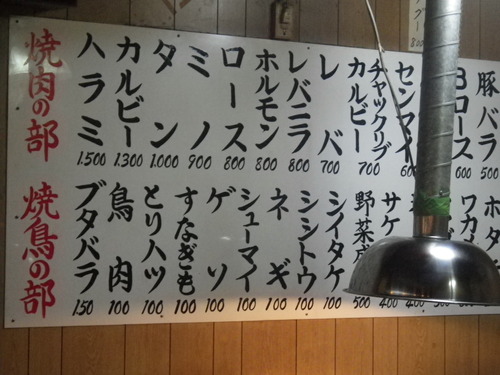 焼肉の部
ハラミ 1.500
カルビー 1.300
タン 1.000
ミノ 900
ロース 800
ホルモン 800
レバニラ 800
レバ 700
チャックリブカルビー 700
センマイ
Bロース 600
豚バラ 500
焼鳥の部
ブタバラ 150
鳥肉 100
とりハツ 100
すなぎも 100
ゲソ 100
シューマイ 100
ネギ 100
シシトウ 100
シイタケ 100
野菜 500
サケ 400
ワカメ